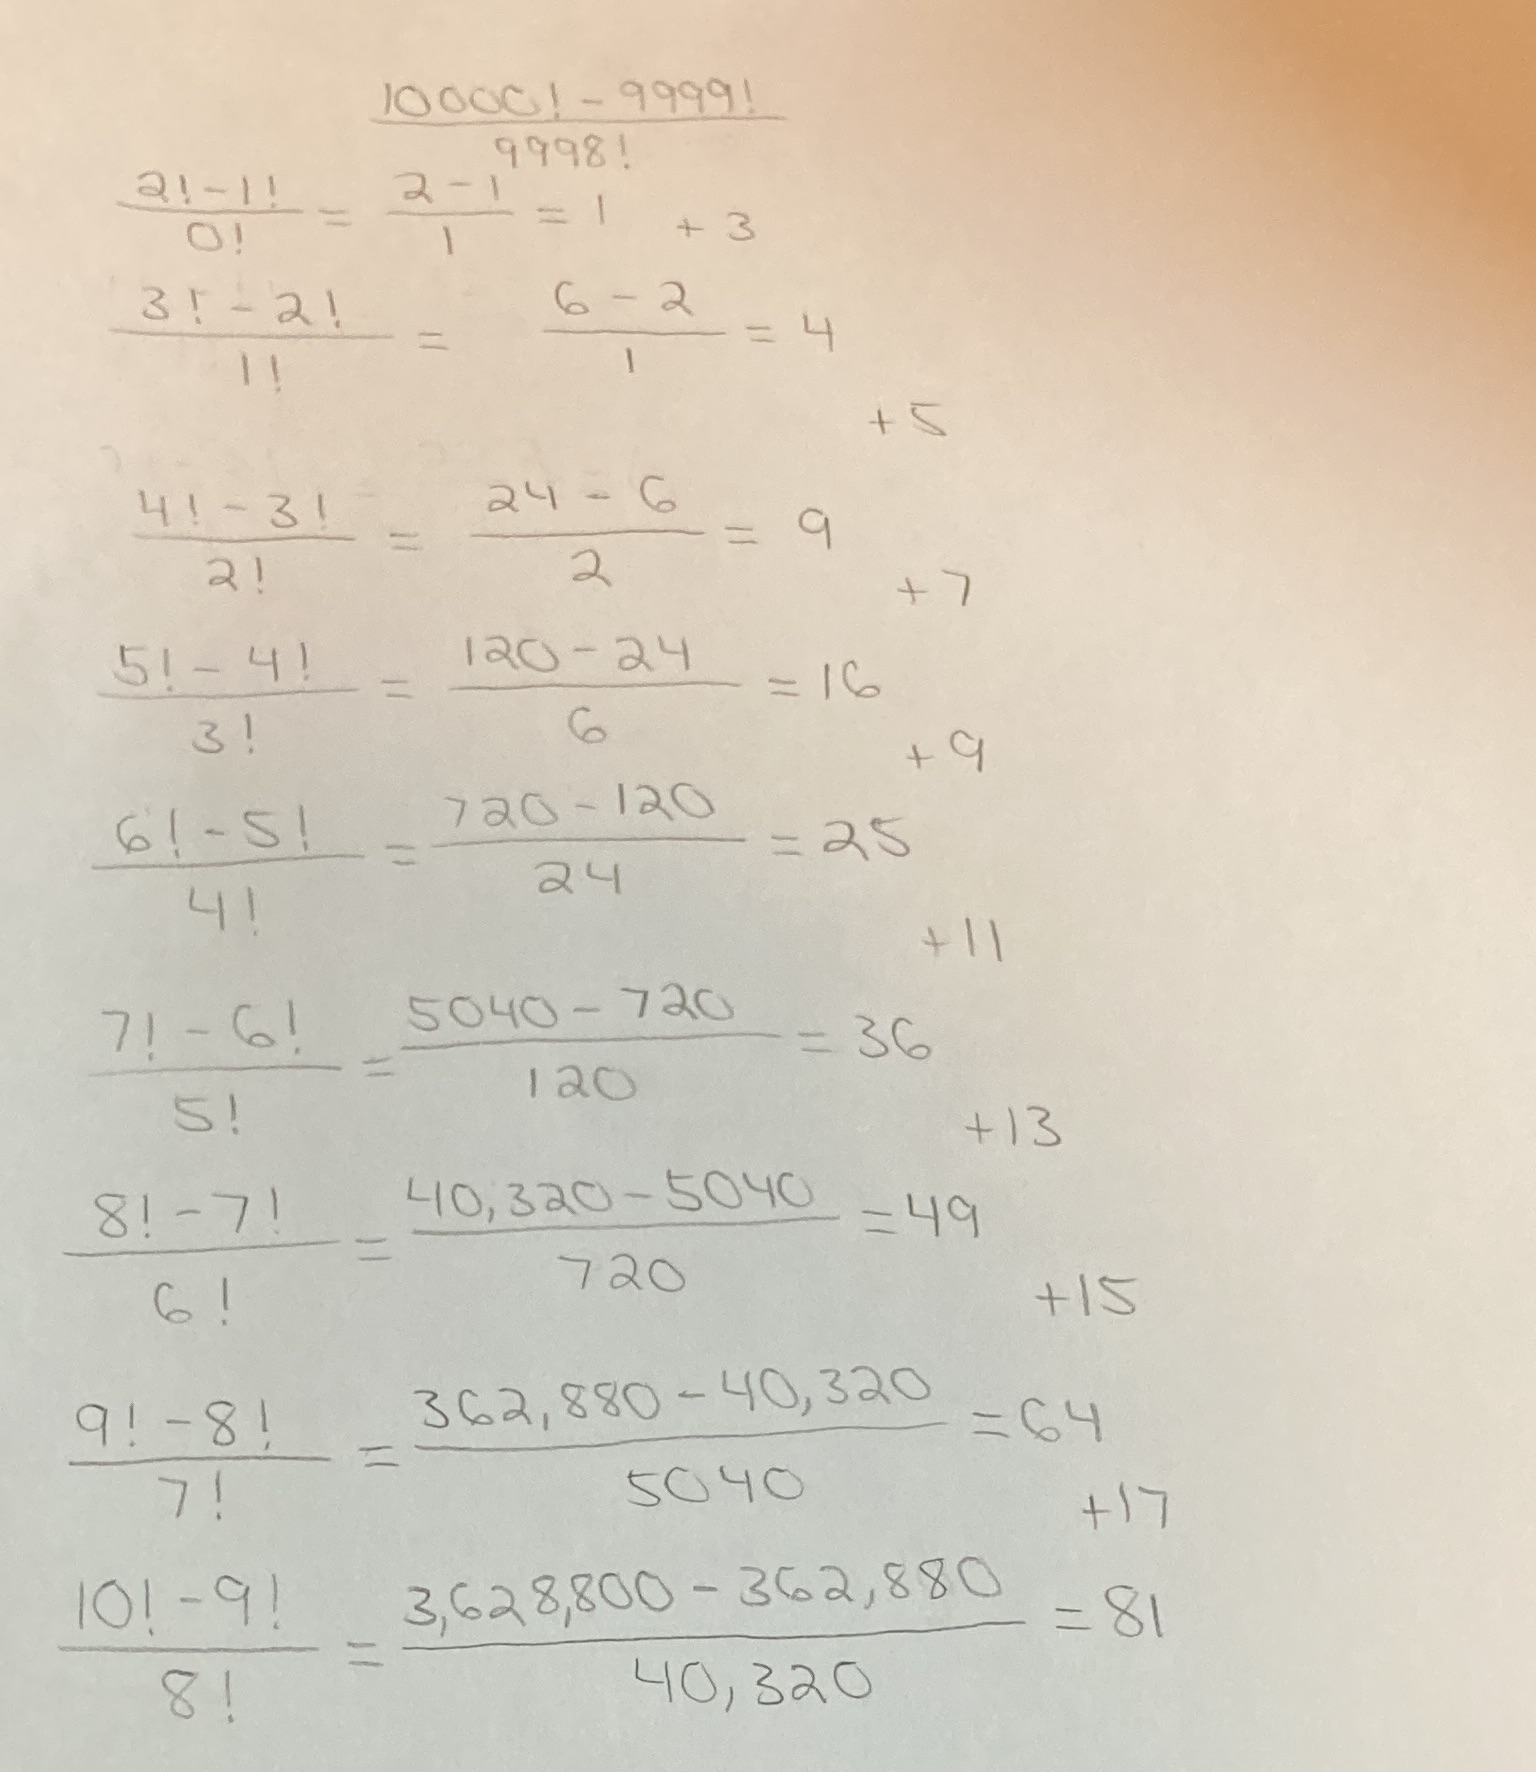 10000! - 9999!
9998!
2! - 1! / 0! = 2 - 1 / 1 = 1 + 3
3! - 2! / 1! = 6 - 2 / 1 = 4
+ 5
4! - 3! / 2! = 24 - 6 / 2 = 9
+ 7
5! - 4! / 3! = 120 - 24 / 6 = 16
+ 9
6! - 5! / 4! = 720 - 120 / 24 = 25
+ 11
7! - 6! / 5! = 5040 - 720 / 120 = 36
+ 13
8! - 7! / 6! = 40,320 - 5040 / 720 = 49
+ 15
9! - 8! / 7! = 362,880 - 40,320 / 5040 = 64
+ 17
10! - 9! / 8! = 3,628,800 - 362,880 / 40,320 = 81